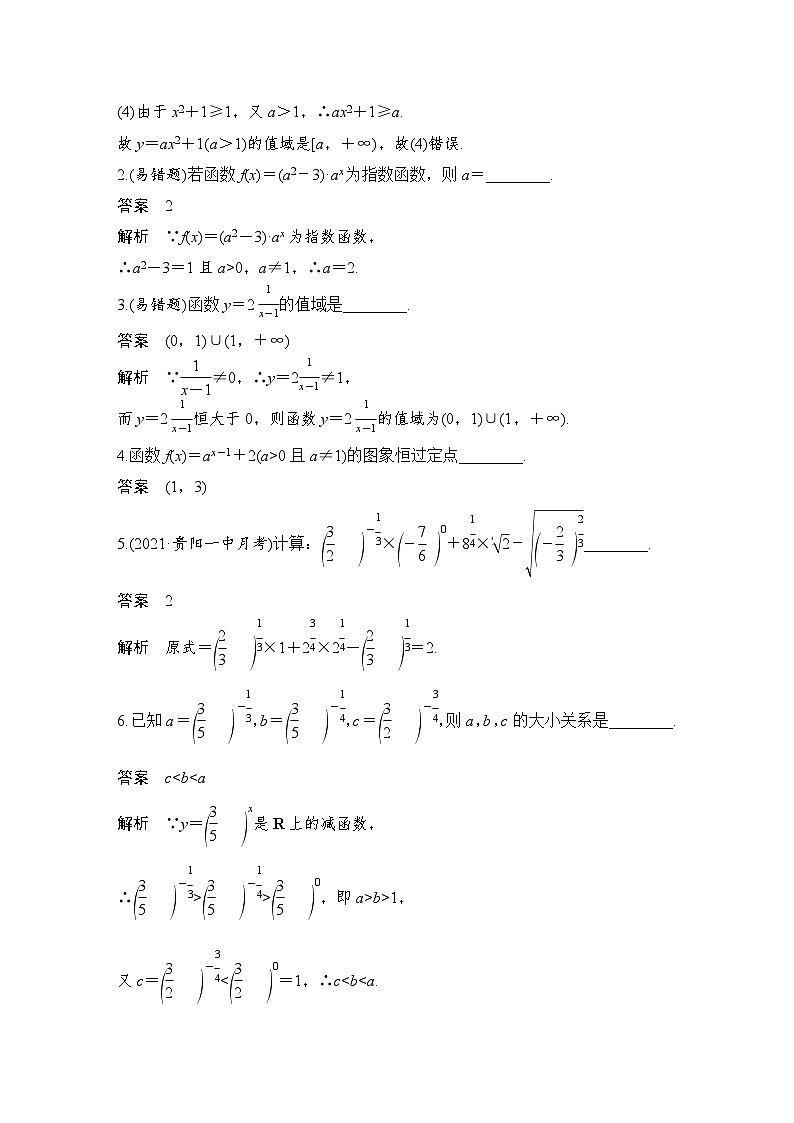 (4)由于 x²+1≥1，又 a＞1，∴ax²+1≥a.
故 y=ax²+1(a＞1)的值域是[a，+∞)，故(4)错误.
2.(易错题)若函数 f(x)=(a²-3)·aˣ为指数函数，则 a=________.
答案　2
解析　∵f(x)=(a²-3)·aˣ为指数函数，
∴a²-3=1 且 a>0，a≠1，∴a=2.
3.(易错题)函数 y=2^{\frac{1}{x-1}}的值域是________.
答案　(0，1)∪(1，+∞)
解析　∵\frac{1}{x-1}≠0，∴y=2^{\frac{1}{x-1}}≠1，
而 y=2^{\frac{1}{x-1}}恒大于 0，则函数 y=2^{\frac{1}{x-1}}的值域为(0，1)∪(1，+∞).
4.函数 f(x)=a^{x-1}+2(a>0 且 a≠1)的图象恒过定点________.
答案　(1，3)
5.(2021·贵阳一中月考)计算：(\frac{3}{2})^{-\frac{1}{3}}×(-\frac{7}{6})^{0}+8^{\frac{1}{4}}×\sqrt[4]{2}-\sqrt{(-\frac{2}{3})^{\frac{2}{3}}}________.
答案　2
解析　原式=(\frac{2}{3})^{\frac{1}{3}}×1+2^{\frac{3}{4}}×2^{\frac{1}{4}}-(\frac{2}{3})^{\frac{1}{3}}=2.
6.已知 a=(\frac{3}{5})^{-\frac{1}{3}},b=(\frac{3}{5})^{-\frac{1}{4}},c=(\frac{3}{2})^{-\frac{3}{4}},则 a,b,c 的大小关系是________.
答案　c<b<a
解析　∵y=(\frac{3}{5})^{x}是 R 上的减函数，
∴(\frac{3}{5})^{-\frac{1}{3}}>(\frac{3}{5})^{-\frac{1}{4}}>(\frac{3}{5})^{0}，即 a>b>1，
又 c=(\frac{3}{2})^{-\frac{3}{4}}<(\frac{3}{2})^{0}=1，∴c<b<a.